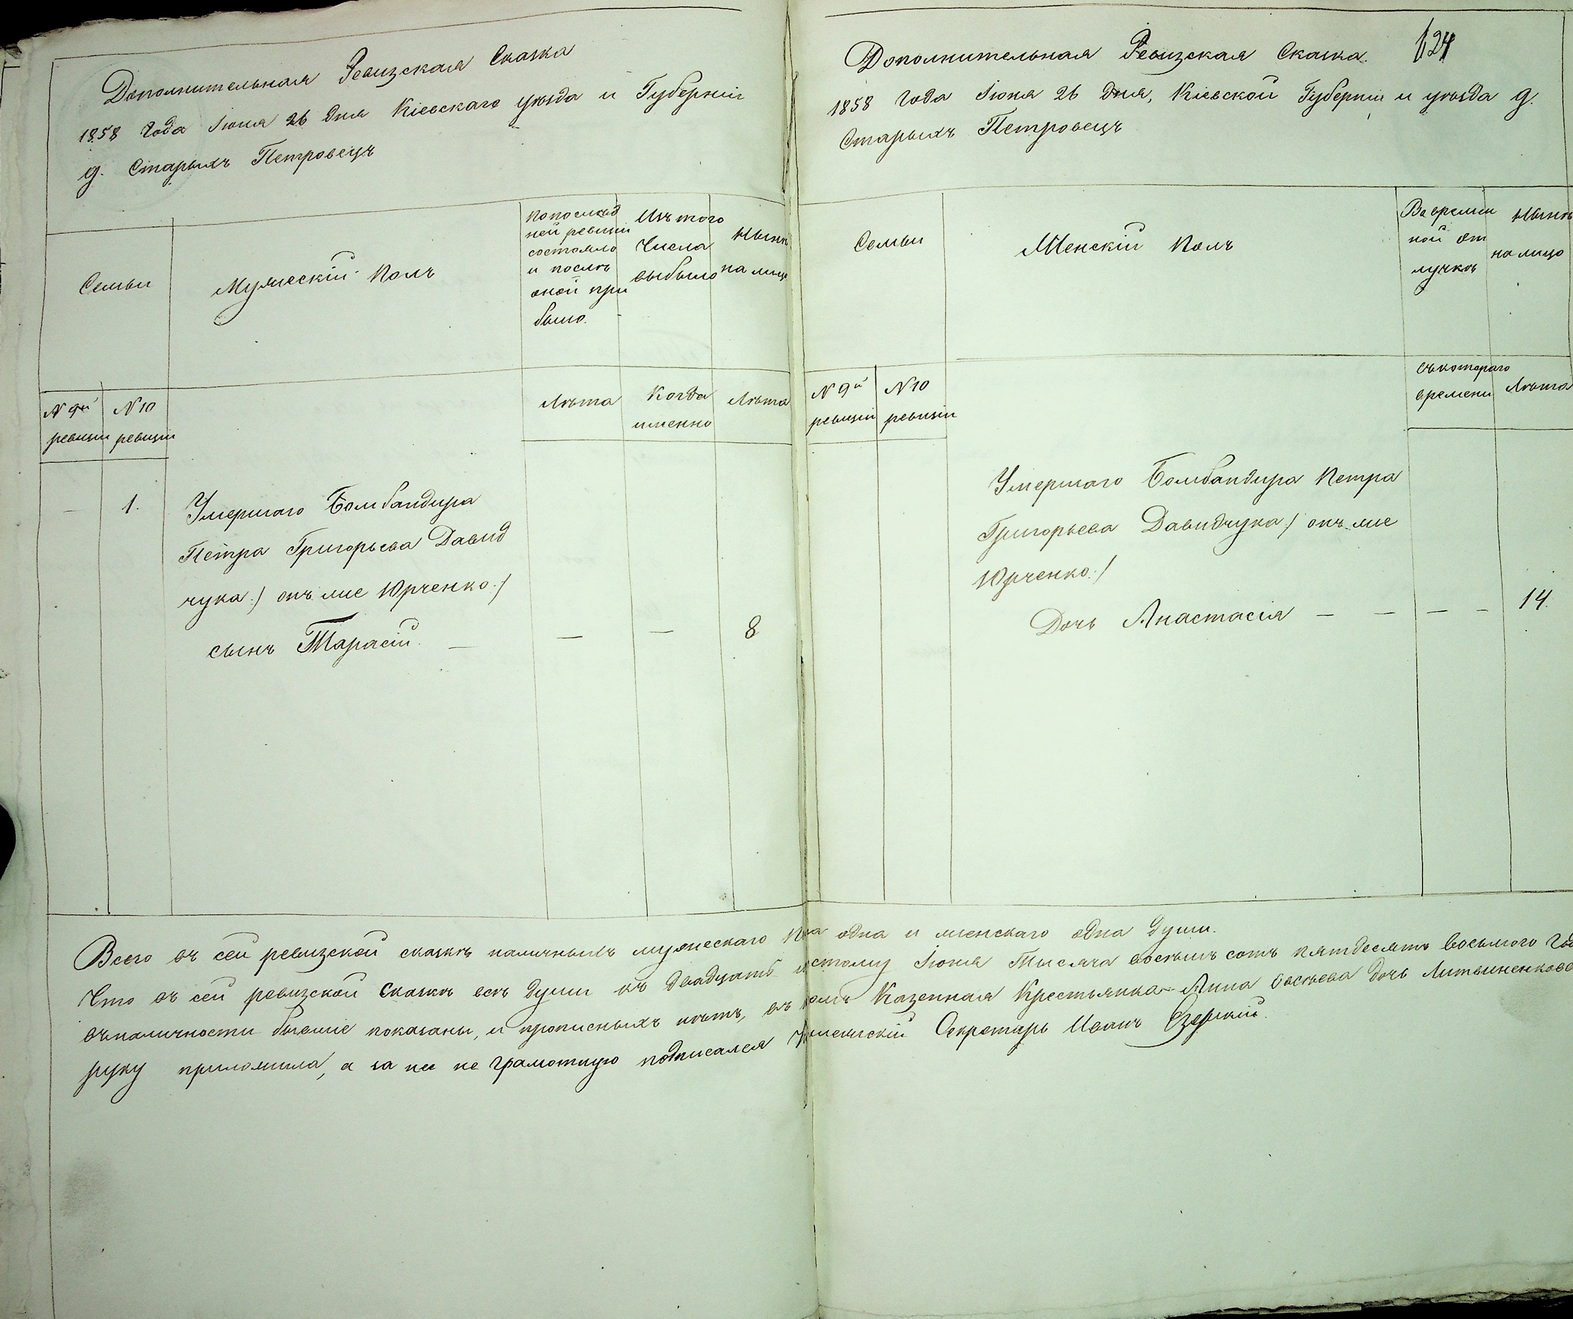 Дополнительная Ревизская Сказка
1858 года Іюня 26 дня Кіевскаго уѣзда и Губерніи
д. Старыхъ Петровецъ
Семьи
Мужескій Полъ
По послѣд
ней ревизіи
состояло
и послѣ
оной при
было.
Изъ того
Числа
выбыло
Нынѣ
на лицо
N 9й
ревизіи
N 10
ревизіи
Лѣта
Когда
именно
Лѣта
— 1. Умершаго Бомбандира
Петра Григорьева Давид
чука /: онъ же Юрченко :/
сынъ Тарасій. — — — 8
Дополнительная Ревизская Сказка. 124
1858 Года Іюня 26 Дня, Кіевской Губерніи и уѣзда д.
Старыхъ Петровецъ
Семьи
Женскій Полъ
Во времен
ной от
лучкѣ
Нынѣ
на лицо
N 9й
ревизіи
N 10
ревизіи
съ котораго
времени
Лѣта
Умершаго Бомбандира Петра
Григорьева Давидчука /: онъ же
Юрченко :/
Дочь Анастасія — — — — 14.
Всего въ сей ревизской сказкѣ наличныхъ мужескаго пола одна и женскаго одна души.
Что въ сей ревизской сказкѣ всѣ души къ двадцать шестому Іюня Тысяча восемь сотъ пятдесятъ восьмого Го
въ наличности бывшіе показаны, и прописныхъ нѣтъ, въ томъ Казенная Крестьянка Анна дочь Литвиненкова
руку приложила, а за нее не грамотную подписался Секретарь Иванъ